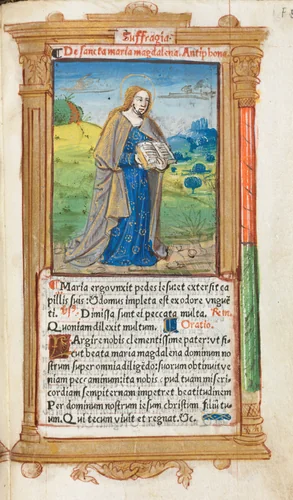 Suffragia.
De sancta maria magdalena. Antiphona.
Maria ergo vnxit pedes iesu: et extersit ca
pillis suis: & domus impleta est ex odore vnguē
ti. Dimissa sunt ei peccata multa.
Quoniam dilexit multum. Oratio.
LArgire nobis clementissime pater: vt si
cut beata maria magdalena dominum no
strum super omnia diligēdo: suorum obtinuit ve
niam peccaminum: ita nobis apud tuam miseri
cordiam sempiternam impetret beatitudinem
Per dominum nostrum iesum christum filiū tu
um. Qui tecum viuit et regnat. &c.